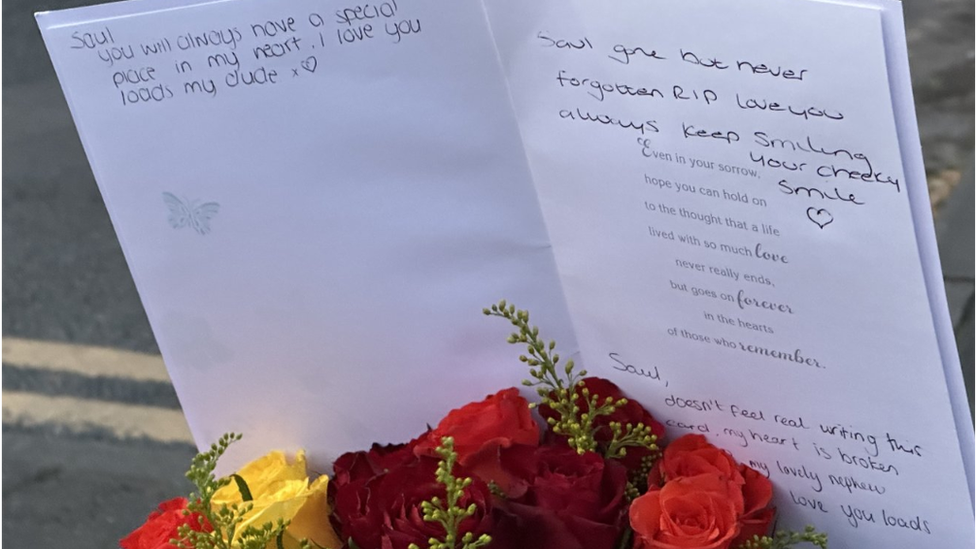 Saul
you will always have a special
place in my heart. I love you
loads my dude x♡
Saul gone but never
forgotten RIP love you
always keep smiling
your cheeky
smile
♡
Even in your sorrow,
hope you can hold on
to the thought that a life
lived with so much love
never really ends,
but goes on forever
in the hearts
of those who remember.
Saul,
doesn't feel real writing this
card, my heart is broken
my lovely nephew
love you loads